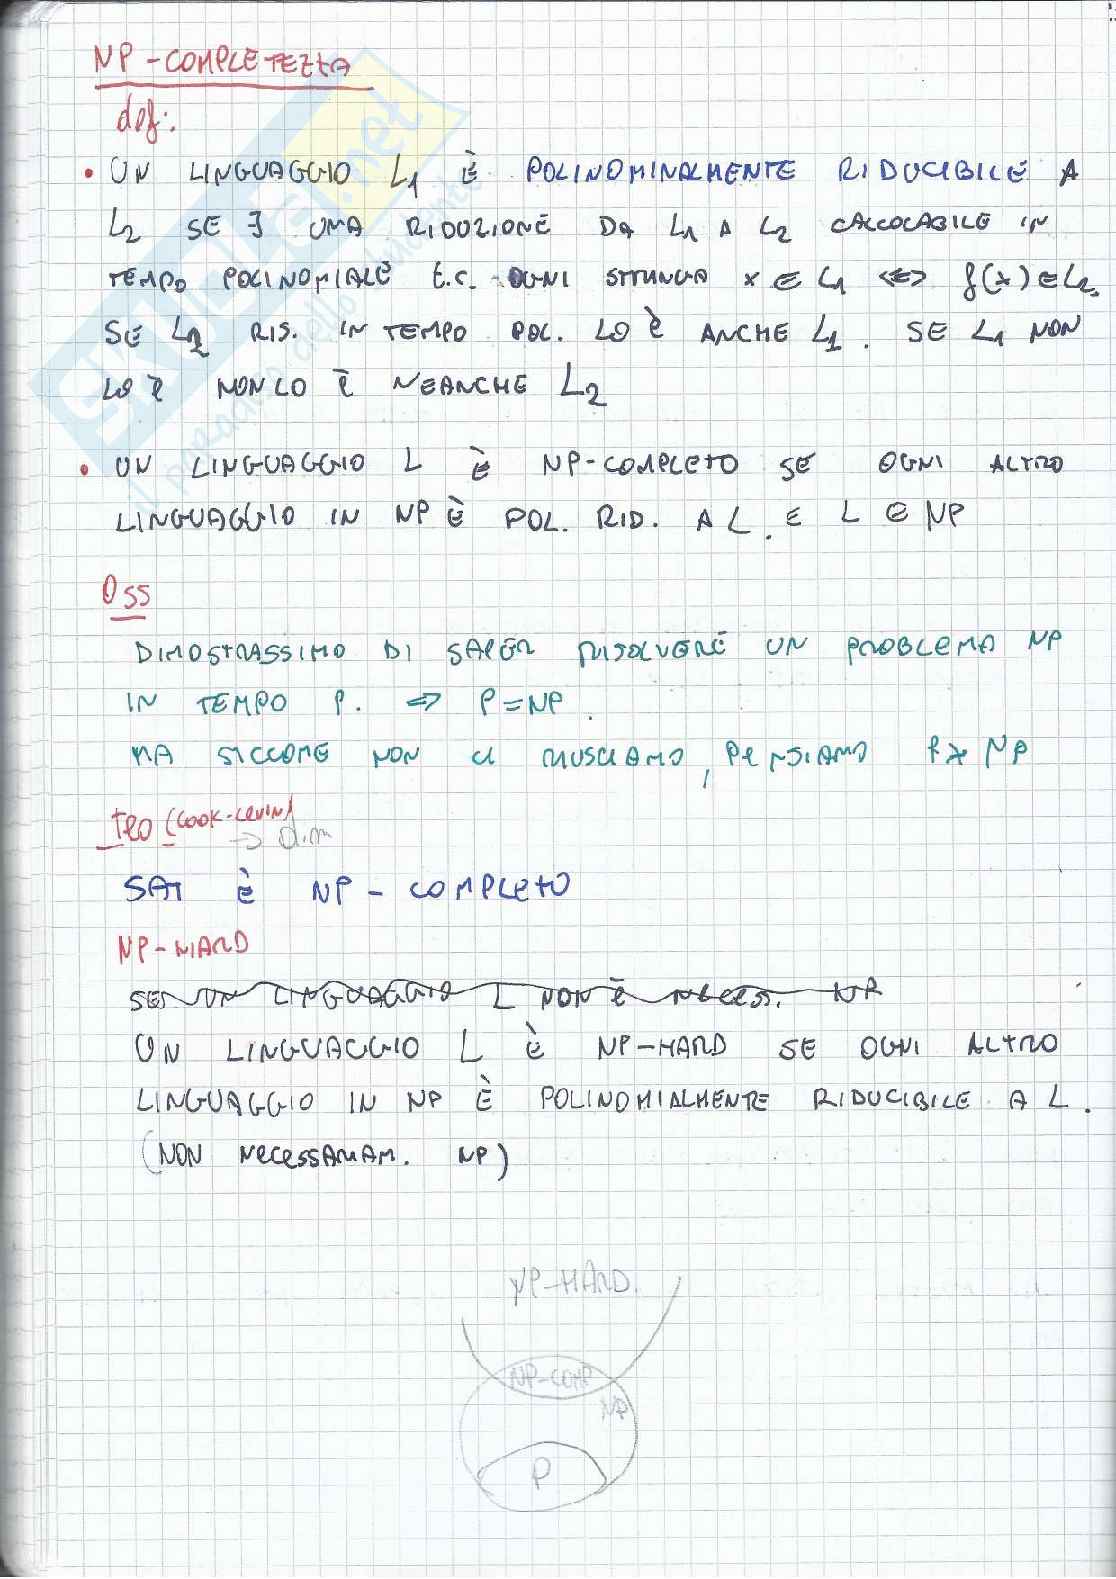 NP-COMPLETEZZA
def:
• UN LINGUAGGIO L1 È POLINOMINALMENTE RIDUCIBILE A
L2 SE ∃ UNA RIDUZIONE DA L1 A L2 CALCOLABILE IN
TEMPO POLINOMIALE t.c. OGNI STRINGA x ∈ L1 <=> f(x) ∈ L2.
SE L2 RIS. IN TEMPO POL. LO È ANCHE L1. SE L1 NON
LO È NON LO È NEANCHE L2
• UN LINGUAGGIO L È NP-COMPLETO SE OGNI ALTRO
LINGUAGGIO IN NP È POL. RID. A L. E L ∈ NP
OSS
DIMOSTRASSIMO DI SAPER RISOLVERE UN PROBLEMA NP
IN TEMPO P. => P=NP.
MA SICCOME NON CI RIUSCIAMO, PENSIAMO P≠NP
TEO (COOK-LEVIN)
-> dim
SAT È NP-COMPLETO
NP-HARD
SE UN LINGUAGGIO L NON È NECESS. NP
UN LINGUAGGIO L È NP-HARD SE OGNI ALTRO
LINGUAGGIO IN NP È POLINOMIALMENTE RIDUCIBILE A L.
(NON NECESSARIAM. NP)
NP-HARD.
NP-COMP
NP
P